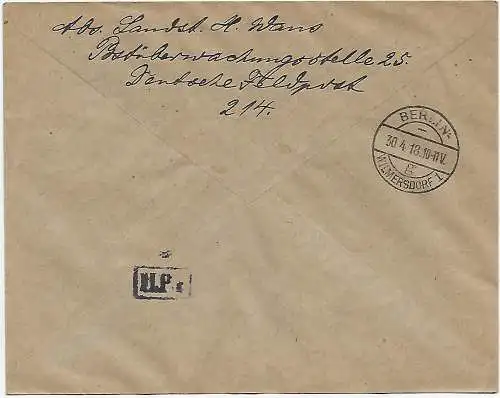 Abs. Landst. H. Wans
Postüberwachungsstelle 25.
Deutsche Feldpost
214.
BERLIN-
30.4.18.10-11V.
WILMERSDORF 1.
M.P.